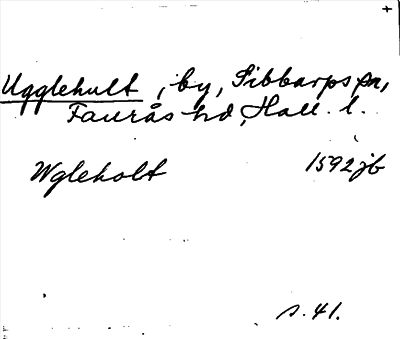 Ugglehult, by, Sibbarps sn,
Faurås hd, Hall. l.
Wgleholt 1592 jb
s. 41.